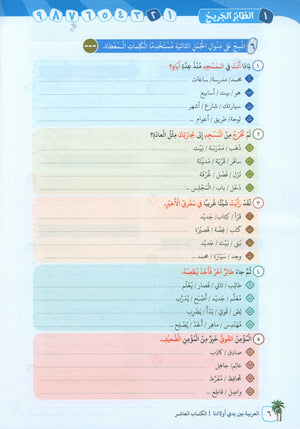 ١ الطائر الجريح ١ ٢ ٣ ٤ ٥ ٦ ٧ ٨ ٩
٦ انسج على منوال الجمل التالية مستخدما الكلمات المعطاة.
١ لماذا أنت في المسجد منذ عدة أيام؟
محمد/ مدرسة/ ساعات
هو / بيت / أسابيع
سيارتك / شارع / أشهر
لوحة / طريق / أعوام
٢ لم تخرج من المسجد إلى تجارتك مثل العادة؟
ذهب / مدرسة / بيت
سافر / قرية / مدينة
نزل / فصل / غرفة
دخل / باب / المجلس
٣ لقد رأيت شيئا غريبا في سفري الأخير.
قرأ / كتاب/ جديد
كتب / قصة / قصيرة
بنى / بيت / جديد
وجد / سيارة / محمد
٤ ثم جاء طائر آخر فأخذ يطعمه.
طالب / ثاني / فصار / يعلم
معلم / جديد / أصبح / يدرب
لص / قوي / بدأ / يضرب
مهندس / ماهر / أخذ / يصلح
٥ المؤمن القوي خير من المؤمن الضعيف.
صادق / كاذب
عالم/ جاهل
محافظ / مفرط
واصل / قاطع
٦ العربية بين يدي أولادنا | الكتاب العاشر